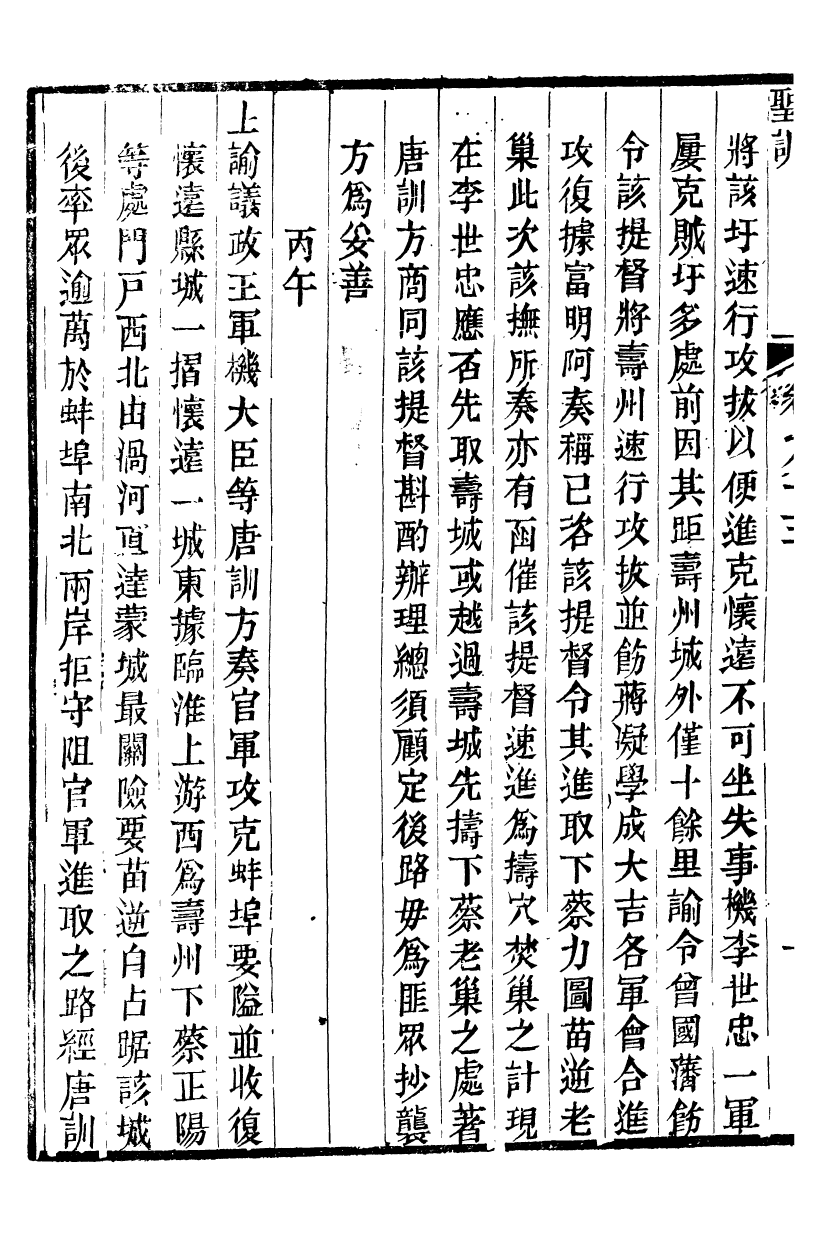 聖訓
將該圩速行攻拔以便進克懷遠不可坐失事機李世忠一軍
屢克賊圩多處前因其距壽州城外僅十餘里諭令曾國藩飭
令該提督將壽州速行攻拔並飭蔣凝學成大吉各軍會合進
攻復據富明阿奏稱已咨該提督令其進取下蔡力圖苗逆老
巢此次該撫所奏亦有函催該提督速進爲擣穴焚巢之計現
在李世忠應否先取壽城或越過壽城先擣下蔡老巢之處著
唐訓方商同該提督斟酌辦理總須顧定後路毋爲匪眾抄襲
方爲妥善
丙午
上諭議政王軍機大臣等唐訓方奏官軍攻克蚌埠要隘並收復
懷遠縣城一摺懷遠一城東據臨淮上游西爲壽州下蔡正陽
等處門戸西北由渦河直達蒙城最關險要苗逆自占踞該城
後率眾逾萬於蚌埠南北兩岸拒守阻官軍進取之路經唐訓